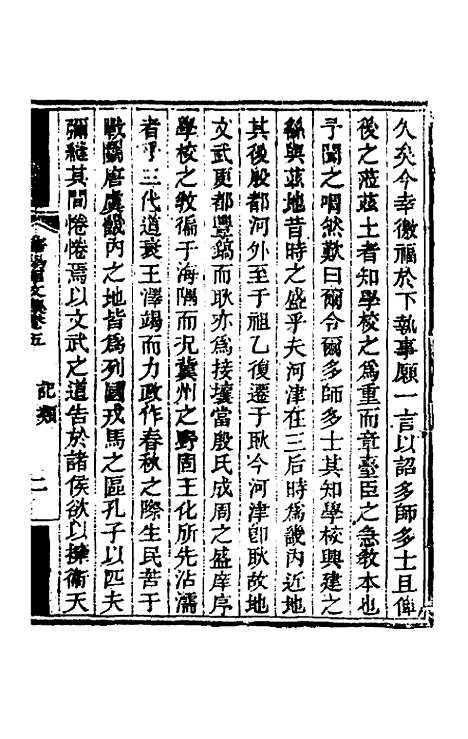 久矣今幸徼福於下執事願一言以詔多師多士且俾
後之蒞茲土者知學校之爲重而章臺臣之急教本也
予聞之喟然歎曰爾令爾多師多士其知學校興建之
繇與茲地昔時之盛乎夫河津在三后時爲畿內近地
其後殷都河外至于祖乙復遷于耿今河津即耿故地
文武更都豐鎬而耿亦爲接壤當殷氏成周之盛庠序
學校之教徧于海隅而況冀州之野固王化所先沾濡
者乎三代道衰王澤竭而力政作春秋之際生民苦于
戰鬬唐虞畿內之地皆爲列國戎馬之區孔子以匹夫
彌縫其間惓惓焉以文武之道告於諸侯欲以擁衛天
文集卷五
記類